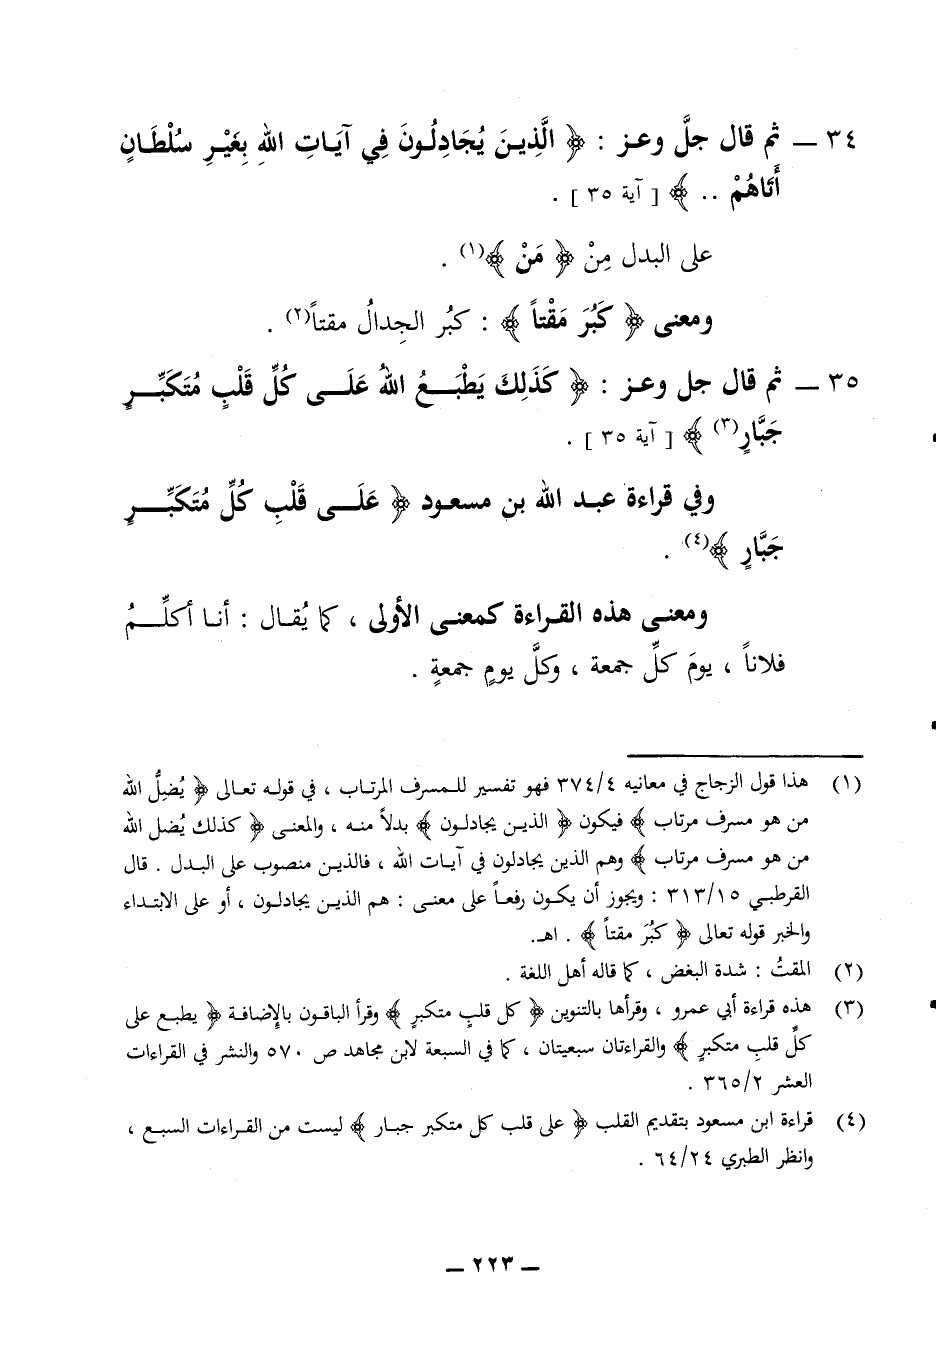 ٣٤ ــ ثم قال جلَّ وعـز : ﴿ الَّذِيـنَ يُجَادِلُـونَ فِي آيَـاتِ اللهِ بِغَيْـرِ سُلْطَـانٍ
أَتَاهُمْ .. ﴾ [ آية ٣٥ ] .
على البدل مِنْ ﴿ مَنْ ﴾(١) .
ومعنى ﴿ كَبُرَ مَقْتاً ﴾ : كبُر الجِدالُ مقتاً(٢) .
٣٥ ــ ثم قال جل وعـز : ﴿ كَذَلِكَ يَطْبَـــعُ اللهُ عَلَـــى كُلِّ قَلْبٍ مُتَكَبِّـــرٍ
جَبَّارٍ(٣) ﴾ [ آية ٣٥ ] .
وفي قراءة عبـد الله بن مسعـود ﴿ عَلَـــى قَلْبِ كُلِّ مُتَكَبِّـــرٍ
جَبَّارٍ ﴾(٤) .
ومعنـى هذه القـراءة كمعنـى الأولى ، كما يُقـال : أنـا أكلِّـــمُ
فلاناً ، يومَ كلِّ جمعة ، وكلَّ يومِ جمعةٍ .
(١) هذا قول الزجاج في معانيه ٣٧٤/٤ فهو تفسير للـمسرف المرتـاب ، في قولـه تعـالى ﴿ يُضِلُّ الله
من هو مسرف مرتاب ﴾ فيكون ﴿ الذيـن يجادلـون ﴾ بدلاً منـه ، والمعنـى ﴿ كذلك يُضل الله
من هو مسرف مرتاب ﴾ وهم الذين يجادلون في آيـات الله ، فالذيـن منصوب على البـدل . قال
القرطبـي ٣١٣/١٥ : ويجوز أن يكـون رفعـاً على معنـى : هم الذيـن يجادلـون ، أو على الابتـداء
والخبر قوله تعالى ﴿ كبُرَ مقتاً ﴾ . اهـ.
(٢) المقتُ : شدة البغض ، كما قاله أهل اللغة .
(٣) هذه قراءة أبي عمرو ، وقرأها بالتنوين ﴿ كل قلبٍ متكبرٍ ﴾ وقرأ الباقون بالإضافـة ﴿ يطبـع على
كلِّ قلبِ متكبرٍ ﴾ والقراءتان سبعيتان ، كما في السبعة لابن مجاهد ص ٥٧٠ والنشر في القراءات
العشر ٣٦٥/٢ .
(٤) قراءة ابن مسعود بتقديم القلب ﴿ على قلب كل متكبر جبـار ﴾ ليست من القـراءات السبـع ،
وانظر الطبري ٦٤/٢٤ .
ــ ٢٢٣ ــ